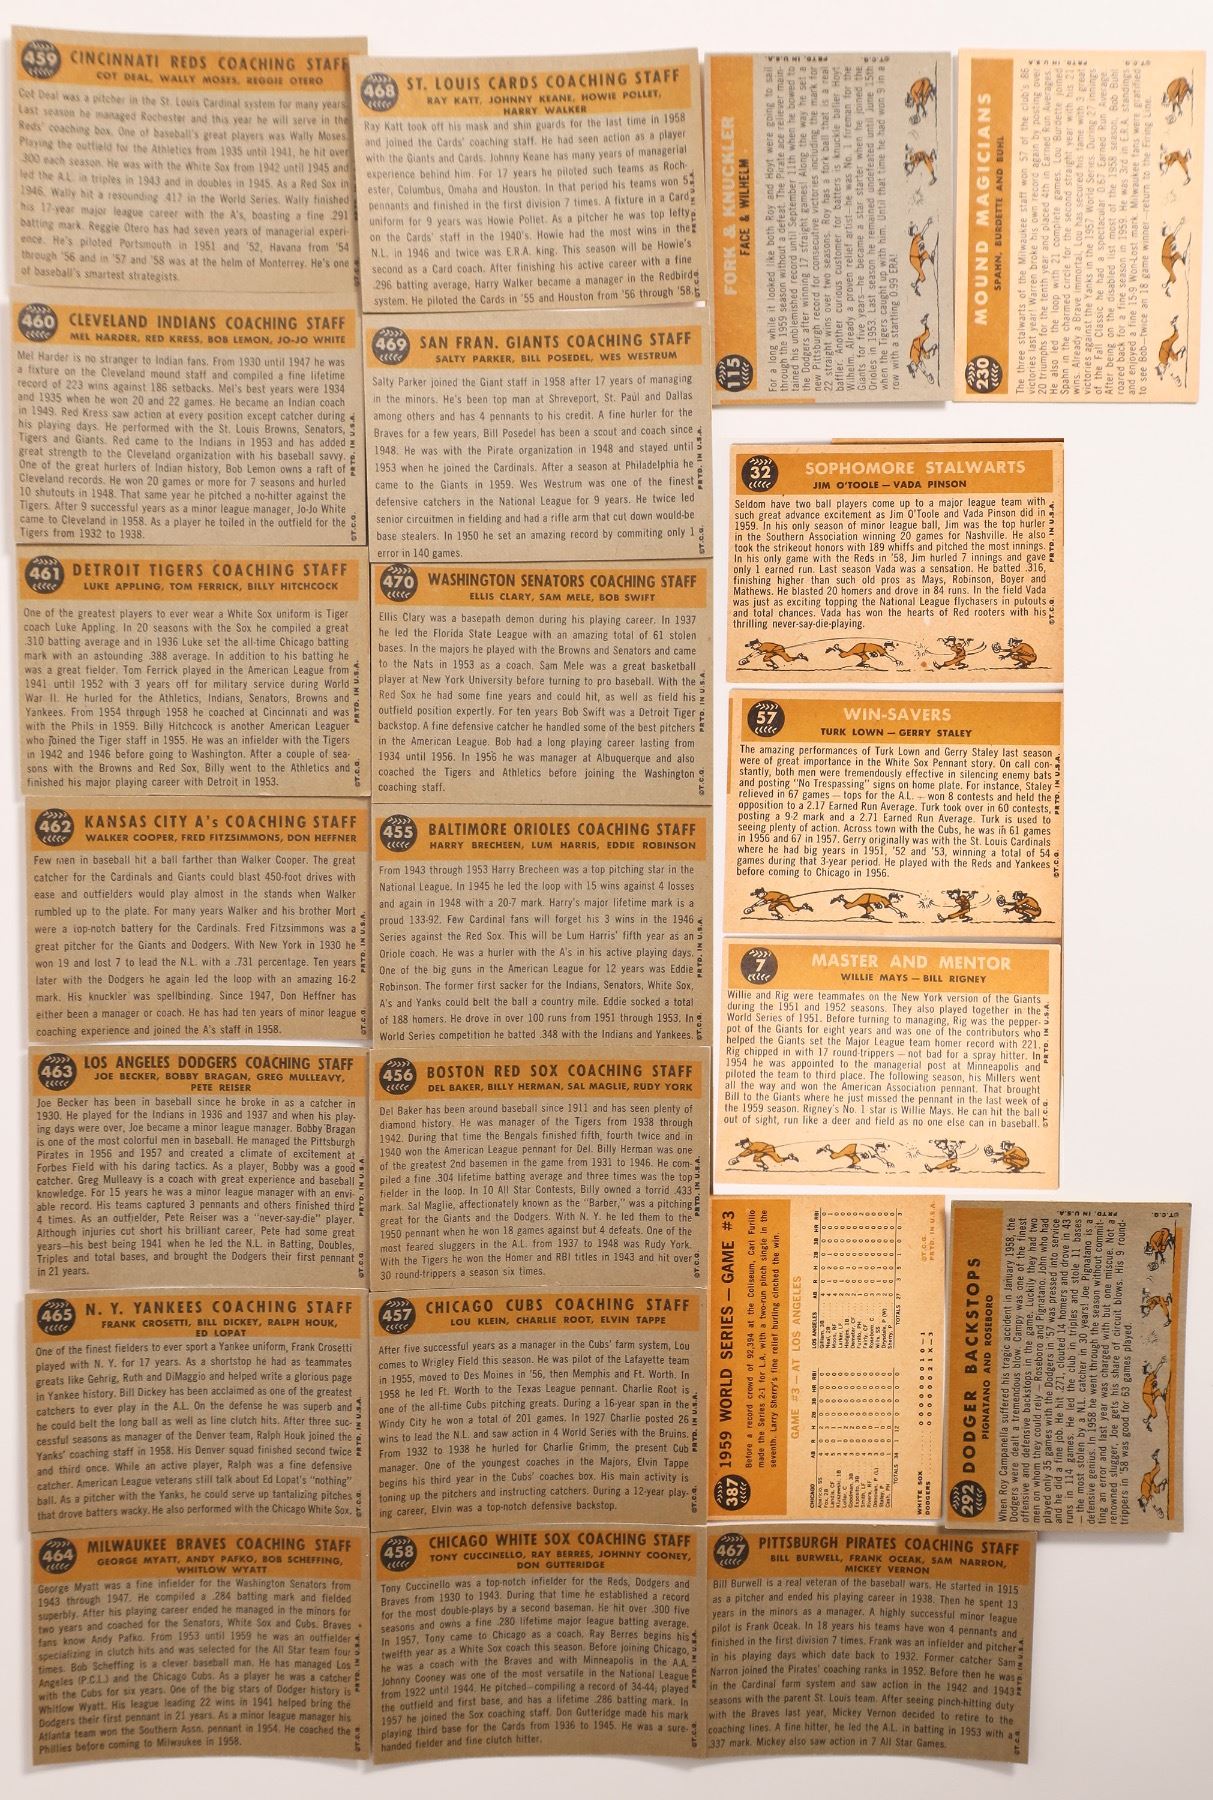 459
CINCINNATI REDS COACHING STAFF
COT DEAL, WALLY MOSES, REGGIE OTERO
Cot Deal was a pitcher in the St. Louis Cardinal system for many years.
Last season he managed Rochester and this year he will serve in the
Reds' coaching box. One of baseball's great players was Wally Moses.
Playing the outfield for the Athletics from 1935 until 1941, he hit over
.300 each season. He was with the White Sox from 1942 until 1945 and
led the A.L. in triples in 1943 and in doubles in 1945. As a Red Sox in
1946, Wally hit a resounding .417 in the World Series. Wally finished
his 17-year major league career with the A's, boasting a fine .291
batting mark. Reggie Otero has had seven years of managerial experi-
ence. He's piloted Portsmouth in 1951 and '52, Havana from '54
through '56 and in '57 and '58 was at the helm of Monterrey. He's one
of baseball's smartest strategists.
460
CLEVELAND INDIANS COACHING STAFF
MEL HARDER, RED KRESS, BOB LEMON, JO-JO WHITE
Mel Harder is no stranger to Indian fans. From 1930 until 1947 he was
a fixture on the Cleveland mound staff and compiled a fine lifetime
record of 223 wins against 186 setbacks. Mel's best years were 1934
and 1935 when he won 20 and 22 games. He became an Indian coach
in 1949. Red Kress saw action at every position except catcher during
his playing days. He performed with the St. Louis Browns, Senators,
Tigers and Giants. Red came to the Indians in 1953 and has added
great strength to the Cleveland organization with his baseball savvy.
One of the great hurlers of Indian history, Bob Lemon owns a raft of
Cleveland records. He won 20 games or more for 7 seasons and hurled
10 shutouts in 1948. That same year he pitched a no-hitter against the
Tigers. After 9 successful years as a minor league manager, Jo-Jo White
came to Cleveland in 1958. As a player he toiled in the outfield for the
Tigers from 1932 to 1938.
461
DETROIT TIGERS COACHING STAFF
LUKE APPLING, TOM FERRICK, BILLY HITCHCOCK
One of the greatest players to ever wear a White Sox uniform is Tiger
coach Luke Appling. In 20 seasons with the Sox he compiled a great
.310 batting average and in 1936 Luke set the all-time Chicago batting
mark with an astounding .388 average. In addition to his batting he
was a great fielder. Tom Ferrick played in the American League from
1941 until 1952 with 3 years off for military service during World
War II. He hurled for the Athletics, Indians, Senators, Browns and
Yankees. From 1954 through 1958 he coached at Cincinnati and was
with the Phils in 1959. Billy Hitchcock is another American Leaguer
who joined the Tiger staff in 1955. He was an infielder with the Tigers
in 1942 and 1946 before going to Washington. After a couple of sea-
sons with the Browns and Red Sox, Billy went to the Athletics and
finished his major playing career with Detroit in 1953.
462
KANSAS CITY A's COACHING STAFF
WALKER COOPER, FRED FITZSIMMONS, DON HEFFNER
Few men in baseball hit a ball farther than Walker Cooper. The great
catcher for the Cardinals and Giants could blast 450-foot drives with
ease and outfielders would play almost in the stands when Walker
rumbled up to the plate. For many years Walker and his brother Mort
were a top-notch battery for the Cardinals. Fred Fitzsimmons was a
great pitcher for the Giants and Dodgers. With New York in 1930 he
won 19 and lost 7 to lead the N.L. with a .731 percentage. Ten years
later with the Dodgers he again led the loop with an amazing 16-2
mark. His knuckler was spellbinding. Since 1947, Don Heffner has
either been a manager or coach. He has had ten years of minor league
coaching experience and joined the A's staff in 1958.
463
LOS ANGELES DODGERS COACHING STAFF
JOE BECKER, BOBBY BRAGAN, GREG MULLEAVY,
PETE REISER
Joe Becker has been in baseball since he broke in as a catcher in
1930. He played for the Indians in 1936 and 1937 and when his play-
ing days were over, Joe became a minor league manager. Bobby Bragan
is one of the most colorful men in baseball. He managed the Pittsburgh
Pirates in 1956 and 1957 and created a climate of excitement at
Forbes Field with his daring tactics. As a player, Bobby was a good
catcher. Greg Mulleavy is a coach with great experience and baseball
knowledge. For 15 years he was a minor league manager with an envi-
able record. His teams captured 3 pennants and others finished third
4 times. As an outfielder, Pete Reiser was a "never-say-die" player.
Although injuries cut short his brilliant career, Pete had some great
years—his best being 1941 when he led the N.L. in Batting, Doubles,
Triples and total bases, and brought the Dodgers their first pennant
in 21 years.
465
N. Y. YANKEES COACHING STAFF
FRANK CROSETTI, BILL DICKEY, RALPH HOUK,
ED LOPAT
One of the finest fielders to ever sport a Yankee uniform, Frank Crosetti
played with N.Y. for 17 years. As a shortstop he had as teammates
greats like Gehrig, Ruth and DiMaggio and helped write a glorious page
in Yankee history. Bill Dickey has been acclaimed as one of the greatest
catchers to ever play in the A.L. On the defense he was superb and
he could belt the long ball as well as line clutch hits. After three suc-
cessful seasons as manager of the Denver team, Ralph Houk joined the
Yanks' coaching staff in 1958. His Denver squad finished second twice
and third once. While an active player, Ralph was a fine defensive
catcher. American League veterans still talk about Ed Lopat's "nothing"
ball. As a pitcher with the Yanks, he could serve up tantalizing pitches
that drove batters wacky. He also performed with the Chicago White Sox.
464
MILWAUKEE BRAVES COACHING STAFF
GEORGE MYATT, ANDY PAFKO, BOB SCHEFFING,
WHITLOW WYATT
George Myatt was a fine infielder for the Washington Senators from
1943 through 1947. He compiled a .284 batting mark and fielded
superbly. After his playing career ended he managed in the minors for
two years and coached for the Senators, White Sox and Cubs. Braves
fans know Andy Pafko. From 1953 until 1959 he was an outfielder
specializing in clutch hits and was selected for the All Star team four
times. Bob Scheffing is a clever baseball man. He has managed Los
Angeles (P.C.L.) and the Chicago Cubs. As a player he was a catcher
with the Cubs for six years. One of the big stars of Dodger history is
Whitlow Wyatt. His league leading 22 wins in 1941 helped bring the
Dodgers their first pennant in 21 years. As a minor league manager his
Atlanta team won the Southern Assn. pennant in 1954. He coached the
Phillies before coming to Milwaukee in 1958.
468
ST. LOUIS CARDS COACHING STAFF
RAY KATT, JOHNNY KEANE, HOWIE POLLET,
HARRY WALKER
Ray Katt took off his mask and shin guards for the last time in 1958
and joined the Cards' coaching staff. He had seen action as a player
with the Giants and Cards. Johnny Keane has many years of managerial
experience behind him. For 17 years he piloted such teams as Roch-
ester, Columbus, Omaha and Houston. In that period his teams won 5
pennants and finished in the first division 7 times. A fixture in a Card
uniform for 9 years was Howie Pollet. As a pitcher he was top lefty
on the Cards' staff in the 1940's. Howie had the most wins in the
N.L. in 1946 and twice was E.R.A. king. This season will be Howie's
second as a Card coach. After finishing his active career with a fine
.296 batting average, Harry Walker became a manager in the Redbird
system. He piloted the Cards in '55 and Houston from '56 through '58.
469
SAN FRAN. GIANTS COACHING STAFF
SALTY PARKER, BILL POSEDEL, WES WESTRUM
Salty Parker joined the Giant staff in 1958 after 17 years of managing
in the minors. He's been top man at Shreveport, St. Paul and Dallas
among others and has 4 pennants to his credit. A fine hurler for the
Braves for a few years, Bill Posedel has been a scout and coach since
1948. He was with the Pirate organization in 1948 and stayed until
1953 when he joined the Cardinals. After a season at Philadelphia he
came to the Giants in 1959. Wes Westrum was one of the finest
defensive catchers in the National League for 9 years. He twice led
senior circuitmen in fielding and had a rifle arm that cut down would-be
base stealers. In 1950 he set an amazing record by commiting only 1
error in 140 games.
470
WASHINGTON SENATORS COACHING STAFF
ELLIS CLARY, SAM MELE, BOB SWIFT
Ellis Clary was a basepath demon during his playing career. In 1937
he led the Florida State League with an amazing total of 61 stolen
bases. In the majors he played with the Browns and Senators and came
to the Nats in 1953 as a coach. Sam Mele was a great basketball
player at New York University before turning to pro baseball. With the
Red Sox he had some fine years and could hit, as well as field his
outfield position expertly. For ten years Bob Swift was a Detroit Tiger
backstop. A fine defensive catcher he handled some of the best pitchers
in the American League. Bob had a long playing career lasting from
1934 until 1956. In 1956 he was manager at Albuquerque and also
coached the Tigers and Athletics before joining the Washington
coaching staff.
455
BALTIMORE ORIOLES COACHING STAFF
HARRY BRECHEEN, LUM HARRIS, EDDIE ROBINSON
From 1943 through 1953 Harry Brecheen was a top pitching star in the
National League. In 1945 he led the loop with 15 wins against 4 losses
and again in 1948 with a 20-7 mark. Harry's major lifetime mark is a
proud 133-92. Few Cardinal fans will forget his 3 wins in the 1946
Series against the Red Sox. This will be Lum Harris' fifth year as an
Oriole coach. He was a hurler with the A's in his active playing days.
One of the big guns in the American League for 12 years was Eddie
Robinson. The former first sacker for the Indians, Senators, White Sox,
A's and Yanks could belt the ball a country mile. Eddie socked a total
of 188 homers. He drove in over 100 runs from 1951 through 1953. In
World Series competition he batted .348 with the Indians and Yankees.
456
BOSTON RED SOX COACHING STAFF
DEL BAKER, BILLY HERMAN, SAL MAGLIE, RUDY YORK
Del Baker has been around baseball since 1911 and has seen plenty of
diamond history. He was manager of the Tigers from 1938 through
1942. During that time the Bengals finished fifth, fourth twice and in
1940 won the American League pennant for Del. Billy Herman was one
of the greatest 2nd basemen in the game from 1931 to 1946. He com-
piled a fine .304 lifetime batting average and three times was the top
fielder in the loop. In 10 All Star Contests, Billy owned a torrid .433
mark. Sal Maglie, affectionately known as the "Barber," was a pitching
great for the Giants and the Dodgers. With N. Y. he led them to the
1950 pennant when he won 18 games against but 4 defeats. One of the
most feared sluggers in the A.L. from 1937 to 1948 was Rudy York.
With the Tigers he won the Homer and RBI titles in 1943 and hit over
30 round-trippers a season six times.
457
CHICAGO CUBS COACHING STAFF
LOU KLEIN, CHARLIE ROOT, ELVIN TAPPE
After five successful years as a manager in the Cubs' farm system, Lou
comes to Wrigley Field this season. He was pilot of the Lafayette team
in 1955, moved to Des Moines in '56, then Memphis and Ft. Worth. In
1958 he led Ft. Worth to the Texas League pennant. Charlie Root is
one of the all-time Cubs pitching greats. During a 16-year span in the
Windy City he won a total of 201 games. In 1927 Charlie posted 26
wins to lead the N.L. and saw action in 4 World Series with the Bruins.
From 1932 to 1938 he hurled for Charlie Grimm, the present Cub
manager. One of the youngest coaches in the Majors, Elvin Tappe
begins his third year in the Cubs' coaches box. His main activity is
toning up the pitchers and instructing catchers. During a 12-year play-
ing career, Elvin was a top-notch defensive backstop.
458
CHICAGO WHITE SOX COACHING STAFF
TONY CUCCINELLO, RAY BERRES, JOHNNY COONEY,
DON GUTTERIDGE
Tony Cuccinello was a top-notch infielder for the Reds, Dodgers and
Braves from 1930 to 1943. During that time he established a record
for the most double-plays by a second baseman. He hit over .300 five
seasons and owns a fine .280 lifetime major league batting average.
In 1957, Tony came to Chicago as a coach. Ray Berres begins his
twelfth year as a White Sox coach this season. Before joining Chicago,
he was a coach with the Braves and with Minneapolis in the A.A.
Johnny Cooney was one of the most versatile in the National League
from 1922 until 1944. He pitched—compiling a record of 34-44; played
the outfield and first base, and has a lifetime .286 batting mark. In
1957 he joined the Sox coaching staff. Don Gutteridge made his mark
playing third base for the Cards from 1936 to 1945. He was a sure-
handed fielder and fine clutch hitter.
115
FORK & KNUCKLER
FACE & WILHELM
For a long while it looked like both Roy and Hoyt were going to sail
through the 1959 season without a defeat. The Pirate ace reliever main-
tained his unblemished record until September 11th when he bowed to
the Dodgers after winning 17 straight games! Along the way he set a
new Pittsburgh record for consecutive victories including the mark for
22 straight wins over two seasons. Roy has a fork ball that is a real
baffler. Another curious customer for batters is knuckle baller Hoyt
Wilhelm. Already a proven relief artist—he was No. 1 fireman for the
Giants for five years—he became a star starter when he joined the
Orioles in 1953. Last season he remained undefeated until June 15th
when the Tigers caught up with him. Until that time he had won 9 in a
row with a startling 0.99 ERA!
230
MOUND MAGICIANS
SPAHN, BURDETTE AND BUHL
The three stalwarts of the Milwaukee staff won 57 of the club's 86
victories last year! Warren broke his own record again by posting over
20 triumphs for the tenth year and placed 5th in Earned Run Averages.
He also led the loop with 21 complete games. Lou Burdette joined
Spahn in the charmed circle for the second straight year with his 21
wins. Already a Brave immortal, Lou has accounted with 3 great
victories against the Yanks in the 1957 World Series. During 27 innings
of the Fall Classic he had a spectacular 0.67 Earned Run Average.
After being on the disabled list most of the 1958 season, Bob Buhl
roared back for a fine season in 1959. He was 3rd in E.R.A. standings
and enjoyed a fine 15-9 Won-Lost mark. Milwaukee fans were gratified
to see Bob—twice an 18 game winner—return to the Firing Line.
32
SOPHOMORE STALWARTS
JIM O'TOOLE — VADA PINSON
Seldom have two ball players come up to a major league team with
such great advance excitement as Jim O'Toole and Vada Pinson did in
1959. In his only season of minor league ball, Jim was the top hurler
in the Southern Association winning 20 games for Nashville. He also
took the strikeout honors with 189 whiffs and pitched the most innings.
In his only game with the Reds in '58, Jim hurled 7 innings and gave
only 1 earned run. Last season Vada was a sensation. He batted .316,
finishing higher than such old pros as Mays, Robinson, Boyer and
Mathews. He blasted 20 homers and drove in 84 runs. In the field Vada
was just as exciting topping the National League flychasers in putouts
and total chances. Vada has won the hearts of Red rooters with his
thrilling never-say-die-playing.
57
WIN-SAVERS
TURK LOWN — GERRY STALEY
The amazing performances of Turk Lown and Gerry Staley last season
were of great importance in the White Sox Pennant story. On call con-
stantly, both men were tremendously effective in silencing enemy bats
and posting "No Trespassing" signs on home plate. For instance, Staley
relieved in 67 games — tops for the A.L. — won 8 contests and held the
opposition to a 2.17 Earned Run Average. Turk took over in 60 contests,
posting a 9-2 mark and a 2.71 Earned Run Average. Turk is used to
seeing plenty of action. Across town with the Cubs, he was in 61 games
in 1956 and 67 in 1957. Gerry originally was with the St. Louis Cardinals
where he had big years in 1951, '52 and '53, winning a total of 54
games during that 3-year period. He played with the Reds and Yankees
before coming to Chicago in 1956.
7
MASTER AND MENTOR
WILLIE MAYS — BILL RIGNEY
Willie and Rig were teammates on the New York version of the Giants
during the 1951 and 1952 seasons. They also played together in the
World Series of 1951. Before turning to managing, Rig was the pepper-
pot of the Giants for eight years and was one of the contributors who
helped the Giants set the Major League team homer record with 221.
Rig chipped in with 17 round-trippers — not bad for a spray hitter. In
1954 he was appointed to the managerial post at Minneapolis and
piloted the team to third place. The following season, his Millers went
all the way and won the American Association pennant. That brought
Bill to the Giants where he just missed the pennant in the last week of
the 1959 season. Rigney's No. 1 star is Willie Mays. He can hit the ball
out of sight, run like a deer and field as no one else can in baseball.
387
1959 WORLD SERIES — GAME #3
Before a record crowd of 92,394 at the Coliseum, Carl Furillo
made the Series 2-1 for L.A. with a two-run pinch single in the
seventh. Larry Sherry's fine relief hurling clinched the win.
GAME #3 — AT LOS ANGELES
CHICAGO AB R H 2B 3B HR RBI
LOS ANGELES AB R H 2B 3B HR RBI
WHITE SOX 0 0 0 0 0 0 0 1 0 — 1
DODGERS 0 0 0 0 0 0 2 1 X — 3
292
DODGER BACKSTOPS
PIGNATANO AND ROSEBORO
When Roy Campanella suffered his tragic accident in January 1958, the
Dodgers were dealt a tremendous blow. Campy was one of the finest
offensive and defensive backstops in the league. Luckily they had two
men on whom they could rely—Roseboro and Pignatano. John who had
played only 35 games with the Dodgers in '57 was pressed into service
and he did a fine job. He hit .271, clouted 14 homers and drove in 43
runs in 114 games. He led the club in triples and stole 11 bases
— the most stolen by a N.L. catcher in 30 years! Joe Pignatano is a
defensive genius. In 1958 he went through the season without commit-
ting an error and last year was charged with but one miscue. Not a
renowned slugger, Joe gets his share of circuit blows. His 9 round-
trippers in '58 was good for 63 games played.
467
PITTSBURGH PIRATES COACHING STAFF
BILL BURWELL, FRANK OCEAK, SAM NARRON,
MICKEY VERNON
Bill Burwell is a real veteran of the baseball wars. He started in 1915
as a pitcher and ended his playing career in 1938. Then he spent 13
years in the minors as a manager. A highly successful minor league
pilot is Frank Oceak. In 18 years his teams have won 4 pennants and
finished in the first division 7 times. Frank was an infielder and pitcher
in his playing days which date back to 1932. Former catcher Sam
Narron joined the Pirates' coaching ranks in 1952. Before then he was
in the Cardinal farm system and saw action in the 1942 and 1943
seasons with the parent St. Louis team. After seeing pinch-hitting duty
with the Braves last year, Mickey Vernon decided to retire to the
coaching lines. A fine hitter, he led the A.L. in batting in 1953 with a
.337 mark. Mickey also saw action in 7 All Star Games.